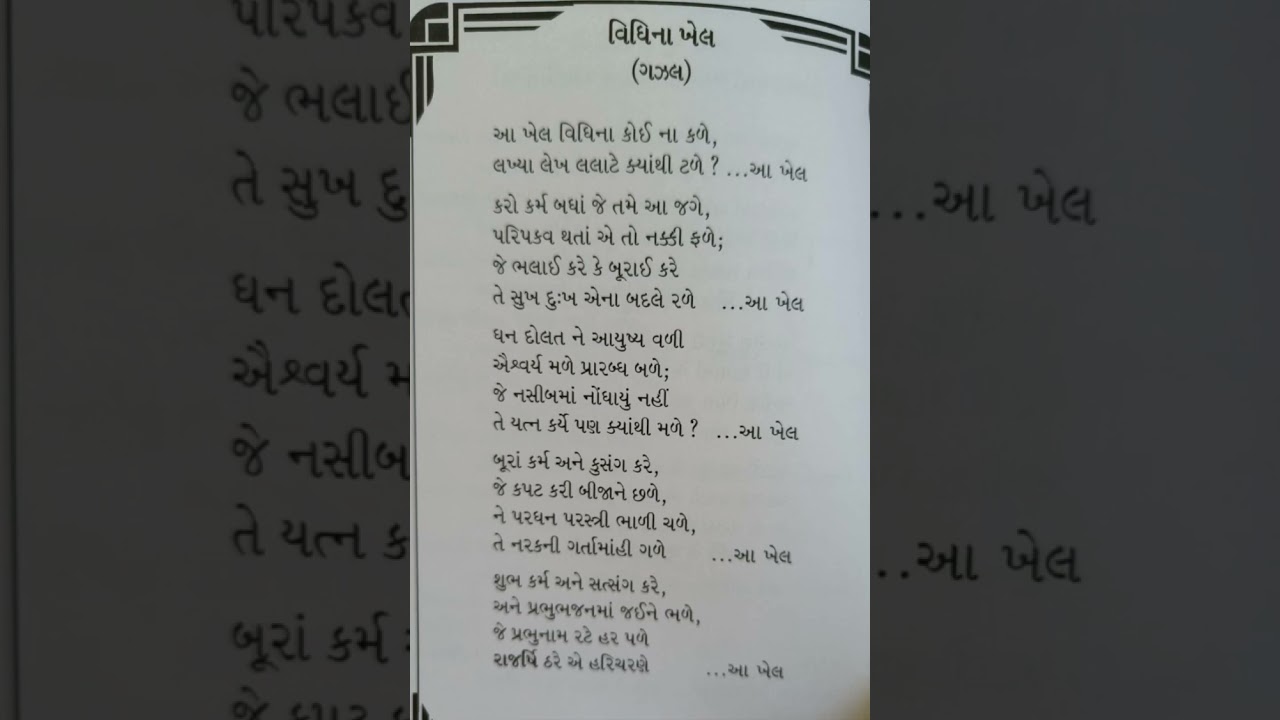 વિધિના ખેલ
(ગઝલ)
આ ખેલ વિધિના કોઈ ના કળે,
લખ્યા લેખ લલાટે ક્યાંથી ટળે ? ...આ ખેલ
કરો કર્મ બધાં જે તમે આ જગે,
પરિપકવ થતાં એ તો નક્કી ફળે;
જે ભલાઈ કરે કે બૂરાઈ કરે
તે સુખ દુઃખ એના બદલે રળે ...આ ખેલ
ધન દોલત ને આયુષ્ય વળી
ઐશ્વર્ય મળે પ્રારબ્ધ બળે;
જે નસીબમાં નોંધાયું નહીં
તે યત્ન કર્યે પણ ક્યાંથી મળે ? ...આ ખેલ
બૂરાં કર્મ અને કુસંગ કરે,
જે કપટ કરી બીજાને છળે,
ને પરધન પરસ્ત્રી ભાળી ચળે,
તે નરકની ગર્તામાંહી ગળે ...આ ખેલ
શુભ કર્મ અને સત્સંગ કરે,
અને પ્રભુભજનમાં જઈને ભળે,
જે પ્રભુનામ રટે હર પળે
રાજર્ષિ ઠરે એ હરિચરણે ...આ ખેલ